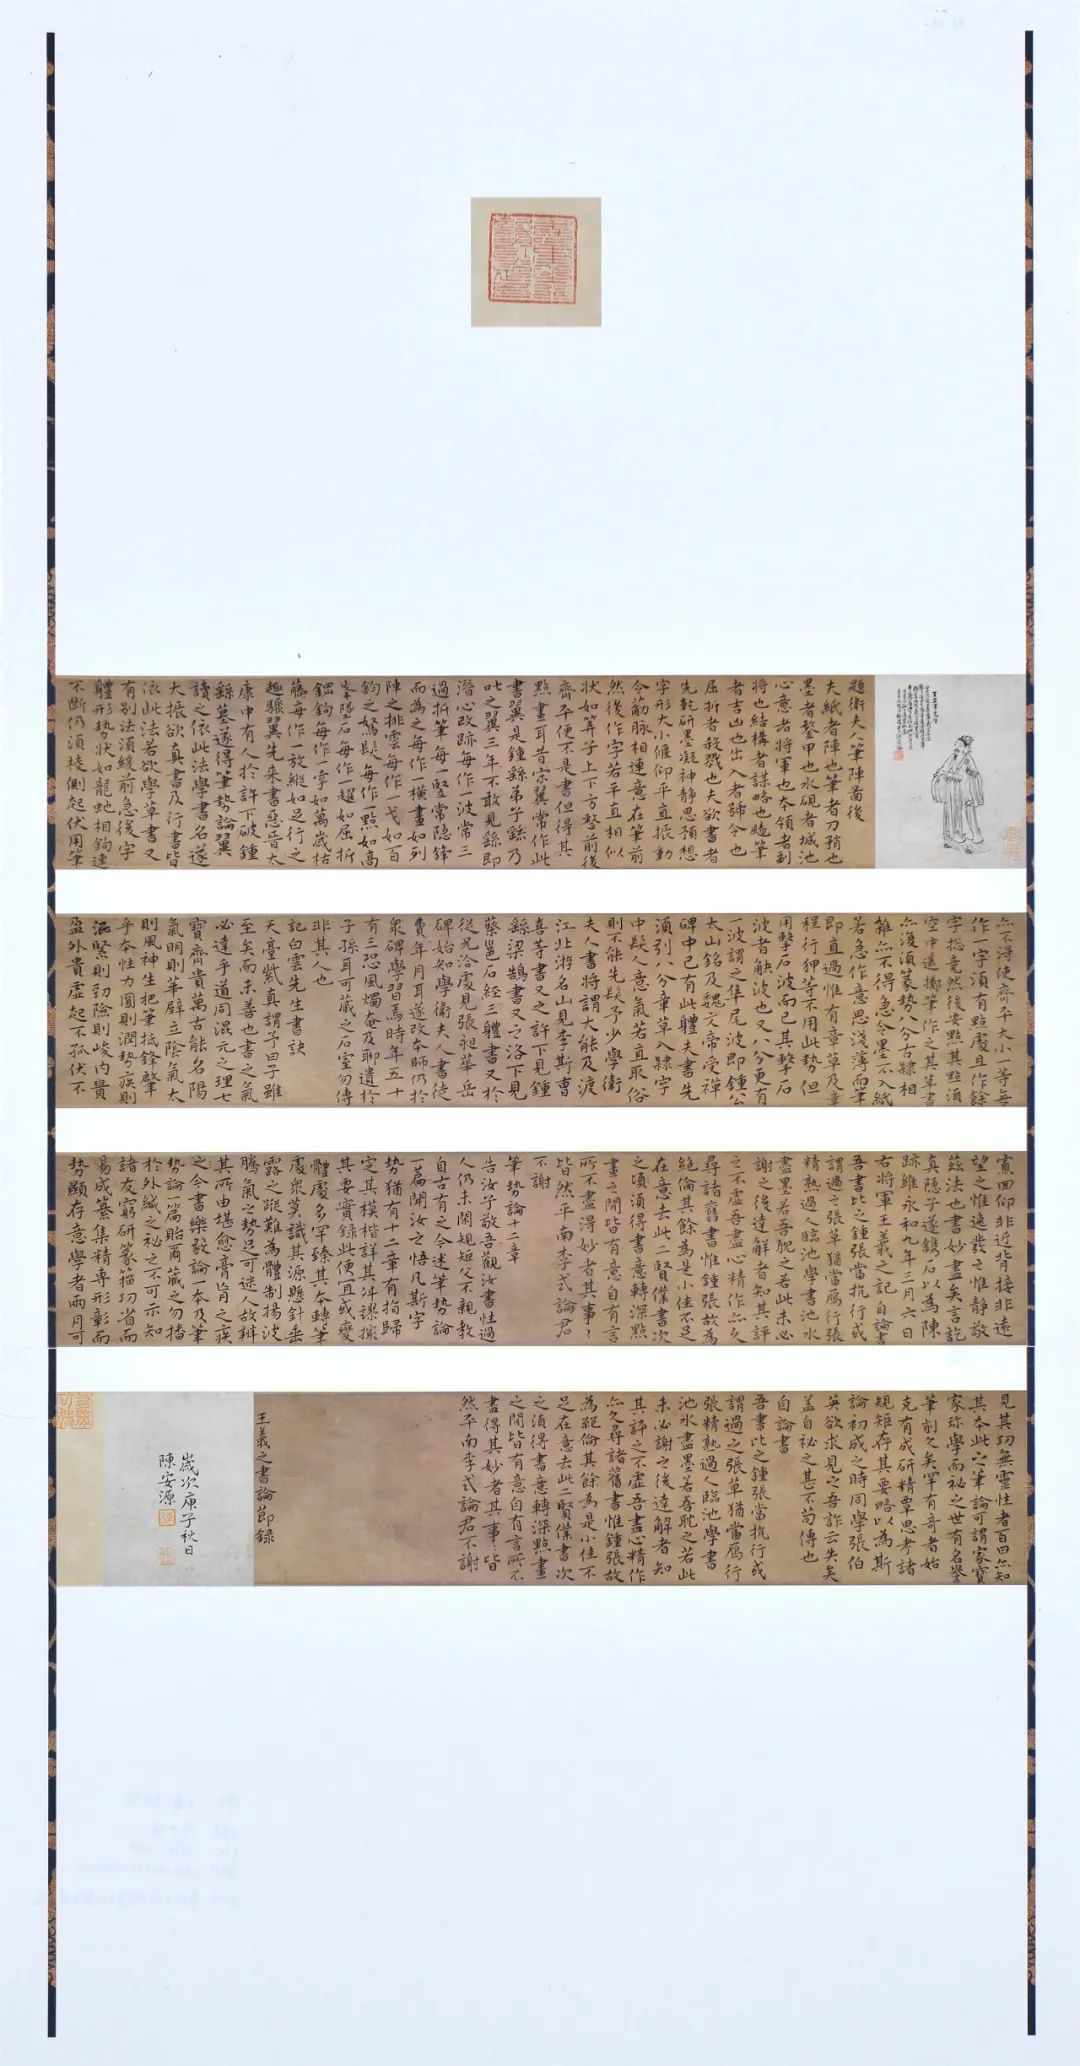 題衛夫人筆陣圖後
夫紙者陣也筆者刀矟也
墨者鍪甲也水硯者城池
心意者將軍也本領者副
將也結構者謀略也颺筆
者吉凶也出入者號令也
屈折者殺戮也夫欲書者
先乾研墨凝神靜思預想
字形大小偃仰平直振動
令筋脉相連意在筆前
然後作字若平直相似
狀如筭子上下方整前後
齊平便不是書但得其
點畫耳昔宋翼常作此
書翼是鍾繇弟子繇乃
叱之翼三年不敢見繇即
潛心改跡每作一波常三
過折筆每一竪常隱鋒
而為之每作一橫畫如列
陣之排雲每作一戈如百
鈞之弩每作一點如高
峯墜石每作屈折如
鋼鉤每作一牽如萬歲枯
藤每作一放縱如足行之
趣驟翼先來書惡晉太
康中有人於許下破鍾
繇墓遂得筆勢論翼
讀之依此法學書名遂
大振欲真書及行書皆
依此法若欲學草書又
有別法須緩前急後字
體形勢狀如龍虵相鉤連
不斷仍須棱側起伏用筆
亦不得使齊平大小一等每
作一字須有點處且作餘
字揔竟然後安點其點須
空中遥擲筆作之其草書
亦復須篆勢八分古隸相
雜亦不得急令墨不入紙
若急作意思淺薄而筆
即直過惟有章草及章
程行狎等不用此勢但
用擊石波而已其擊石
波者缺波也又八分更有
一波謂之隼尾波即鍾公
太山銘及魏文帝受禪
碑中已有此體夫書先
須引八分章草入隸字
中髮人意氣若直取俗
則不能先髮予少學衛
夫人書將謂大能及渡
江北游名山見李斯曹
喜等書又之許下見鍾
繇梁鵠書又之洛下見
蔡邕石經三體書又於
從兄洽處見張昶華岳
碑始知學衛夫人書徒
費年月耳遂改本師仍於
衆碑學習焉時年五十
有三恐風燭奄及聊遺於
子孫耳可藏之石室勿傳
非其人也
記白雲先生書訣
天臺紫真謂予曰子雖
至矣而未善也書之氣
必達乎道同混元之理七
寶齊貴萬古能名陽
氣明則華壁立陰氣太
則風神生把筆抵鋒肇
乎本性力圓則潤勢疾則
澀緊則勁險則峻內貴
盈外貴虛起不孤伏不
寡回仰非近背接非遠
望之惟逸發之惟静敬
茲法也書妙盡矣言訖
真隱子遂鐫石以為陳
跡維永和九年三月六日
右將軍王羲之記自論書
吾書比之鍾張當抗行或
謂過之張草猶當鴈行張
精熟過人臨池學書池水
盡墨若吾躭之若此未必
謝之後達解者知其評
之不虛吾盡心精作亦久
尋諸舊書惟鍾張故為
絶倫其餘為是小佳不足
在意去此二賢僕書次
之頃須得書意轉深點
畫之間皆有意自有言
所不盡得妙者其事〻
皆然平南李式論君
不謝
筆勢論十二章
告汝子敬吾觀汝書性過
人仍未閑規矩父不親教
自古有之今述筆勢論
一篇開汝之悟凡斯字
勢猶有十二章章有指歸
定其模楷詳其舛謬撮
其要實錄此便宜或變
體處多罕臻其本轉筆
處衆莫識其源懸針垂
露之蹤難為體制揚波
騰氣之勢足可迷人故辯
其所由堪愈膏肓之疾
之今書樂毅論一本及筆
勢論一篇貽爾藏之勿播
於外緘之祕之不可示知
諸友窮研篆籀功省而
易成纂集精專形彰而
勢顯存意學者兩月可
見其功無靈性者百日亦知
其本此之筆論可謂家寶
家珎學而祕之世有名譽
筆削久矣罕有奇者始
克有成研精覃思考諸
規矩存其要略以為斯
論初成之時同學張伯
英欲求見之吾詐云失矣
蓋自祕之甚不苟傳也
自論書
吾書比之鍾張當抗行或
謂過之張草猶當鴈行
張精熟過人臨池學書
池水盡墨若吾躭之若此
未必謝之後達解者知
其評之不虛吾盡心精作
亦久尋諸舊書惟鍾張故
為絶倫其餘為是小佳不
足在意去此二賢僕書次
之須得書意轉深點畫
之間皆有意自有言所不
盡得其妙者其事〻皆
然平南李式論君不謝
王羲之書論節錄
歲次庚子秋日
陳安源